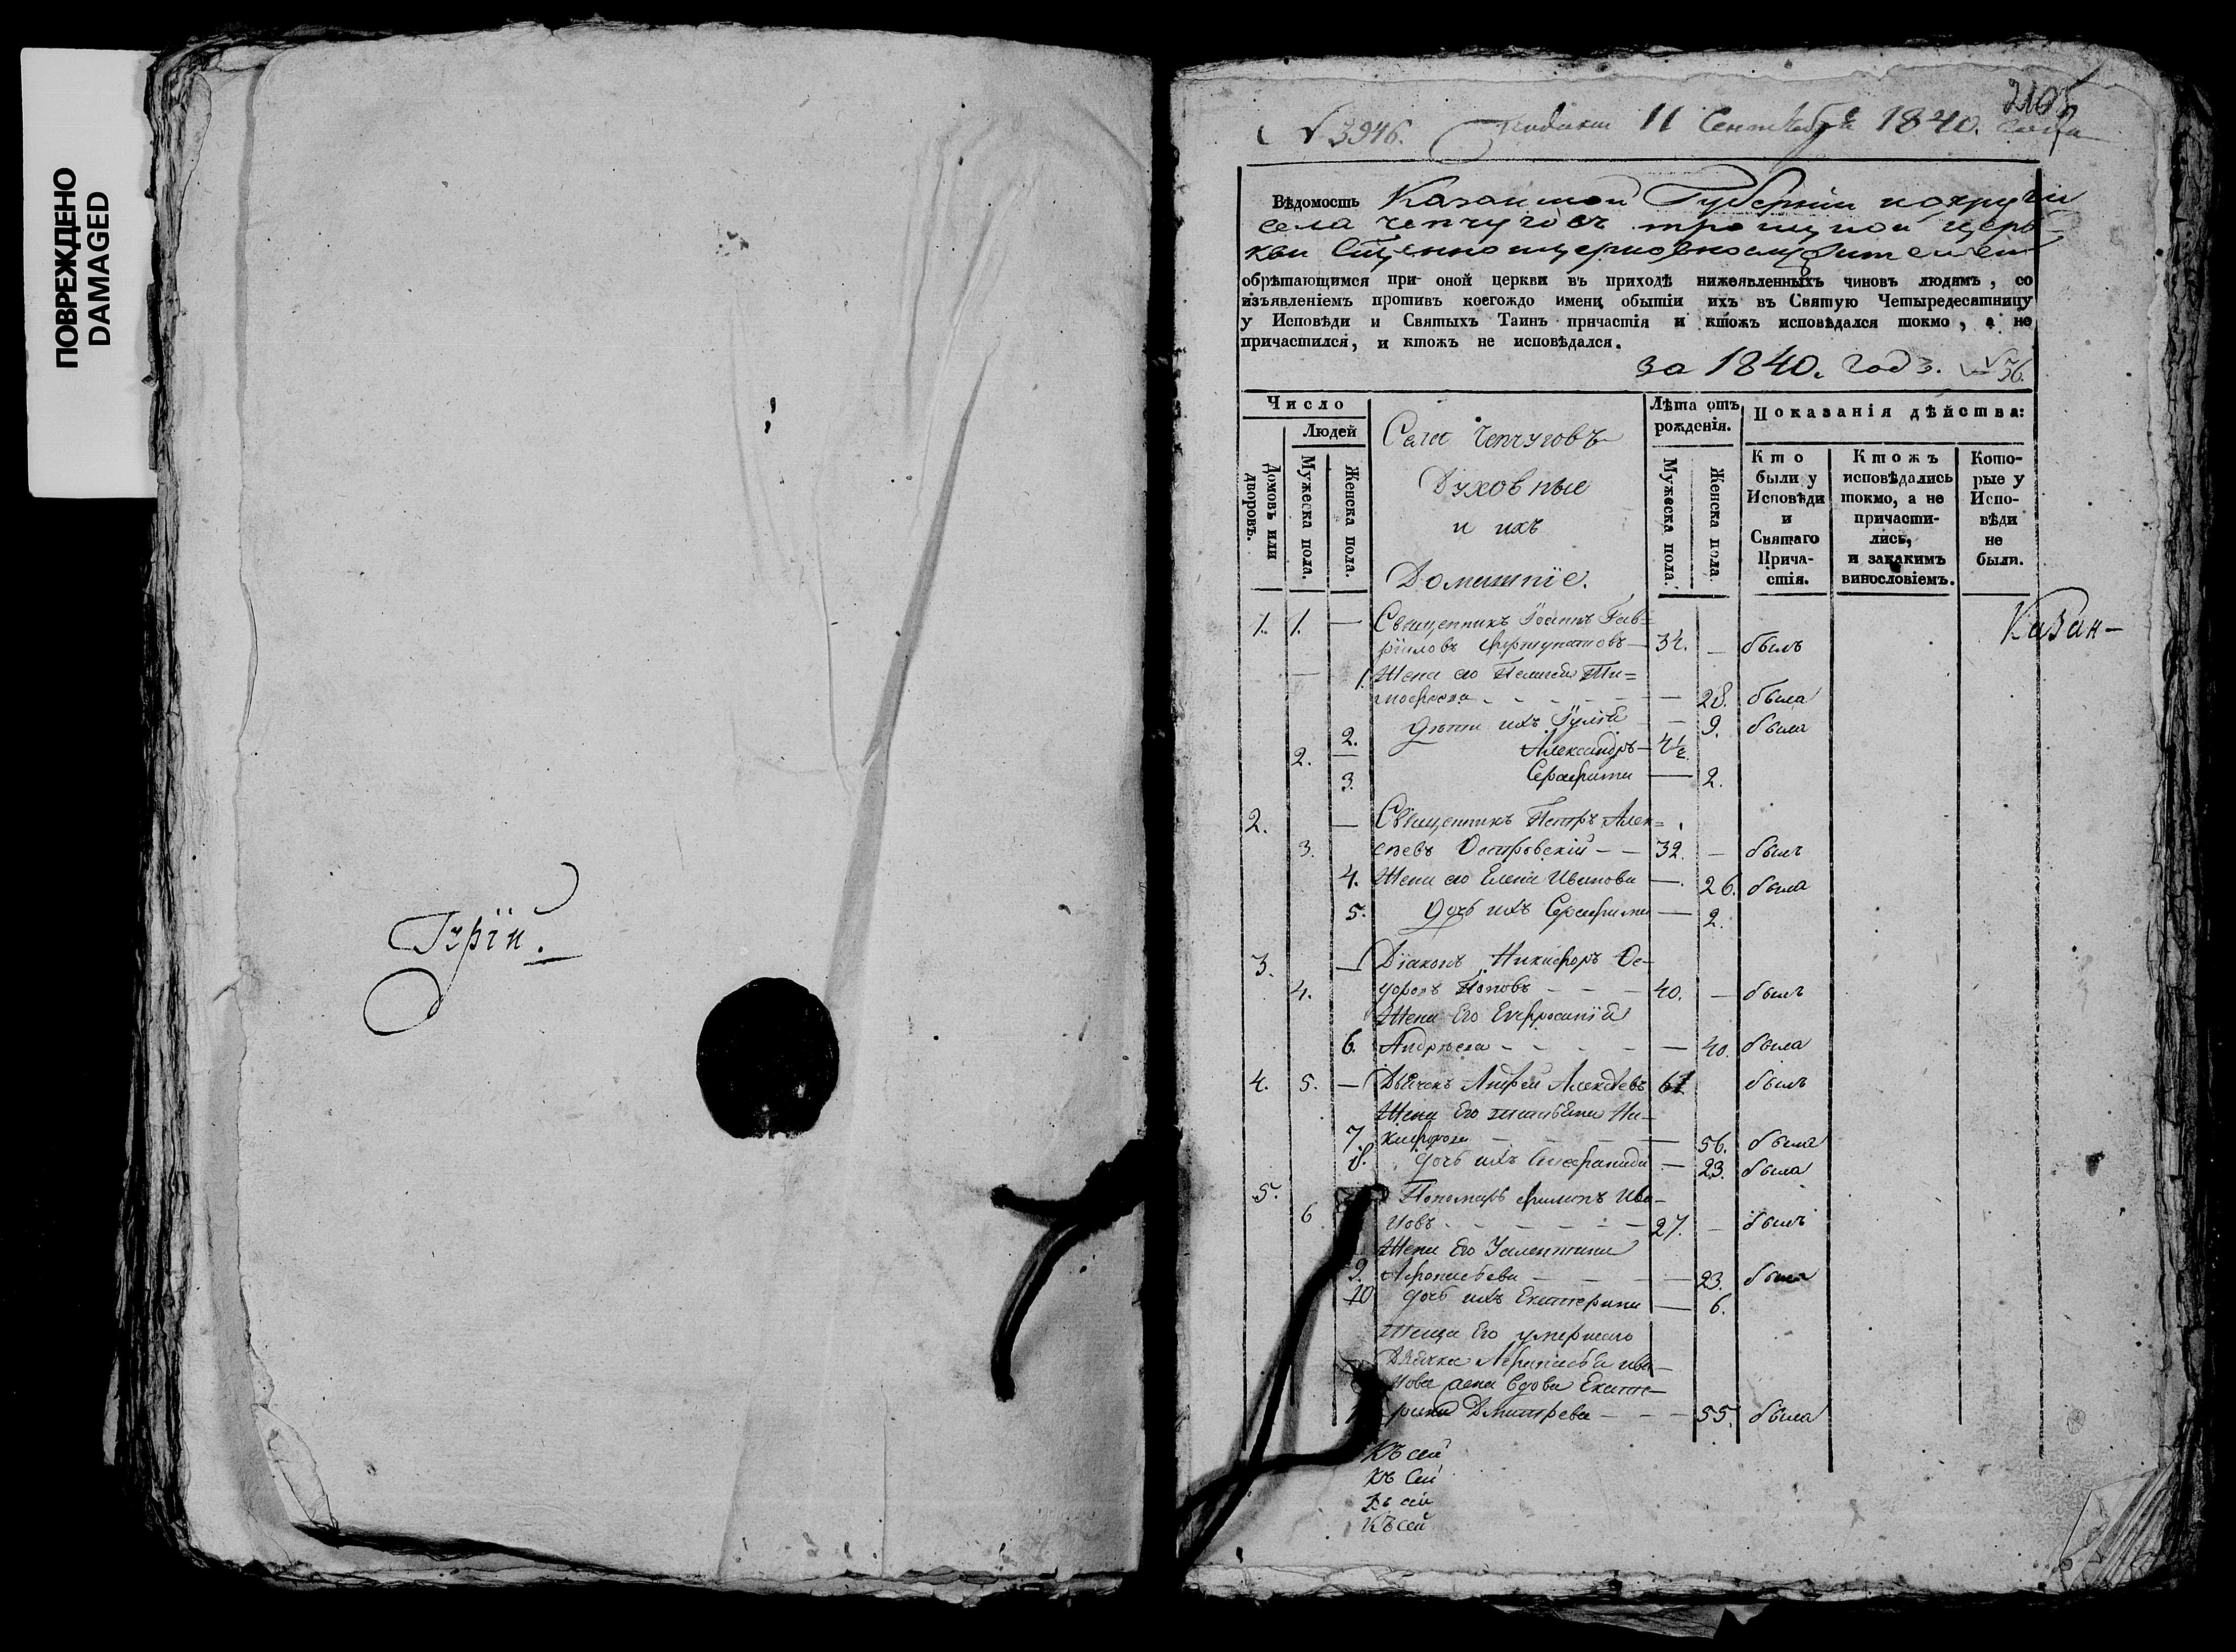 ПОВРЕЖДЕНО
DAMAGED
Гурій.
2105
№ 3946. Подана 11 Сентября 1840. года
Вѣдомость Казанской Губерніи и округи
села Чепчуговъ троицкой церь-
кви Сщенноцерковнослужителей
обрѣтающимся при оной церкви въ приходѣ нижеявленныхъ чиновъ людямъ, со
изъявленіемъ противъ коегождо имени обытіи ихъ въ Святую Четыредесятницу
у Исповѣди и Святыхъ Таинъ причастія и ктожъ исповѣдался токмо, а не
причастился, и ктожъ не исповѣдался.
за 1840. годъ. № 36.
Число
Людей
Домовъ или дворовъ.
Мужеска пола.
Женска пола.
Села Чепчуговъ
Духовные
и ихъ
Домашніе.
Лѣта отъ рожденія.
Мужеска пола.
Женска пола.
Показанія дѣйства:
Кто были у Исповѣди и Святаго Причастія.
Ктожъ исповѣдались токмо, а не причастились, и закакимъ винословіемъ.
Которые у Исповѣди не были.
Казан-
1. 1. — Священникъ Іоаннъ Гав=
риловъ Фортунатовъ — 34. — былъ
— 1 Жена его Пелагея Ти=
мофеева - - - — 28. была
2. Дѣти ихъ Іулія — 9. была
2. — Александръ — 4½
3. Серафима — 2.
2. — Священникъ Петръ Алек=
3. сѣевъ Островскій — — 32. — былъ
4. Жена его Елена Иванова — 26. была
5. Дочь ихъ Серафима — 2.
3. — Діаконъ Никифоръ Ѳе-
4. доровъ Поповъ — — — 40. — былъ
Жена Его Евфросинія
6. Андрѣева - - - — 40. была
4. 5. — Дьячекъ Андрей Алексѣевъ 61 былъ
Жена Его Ни-
7. кифорова — 56. была
8. дочь ихъ — 23. была
5. Пономарь Филипъ Ива-
6 новъ - - - — 27. — былъ
Жена Его
9. Афонасьева — — — 23. была
10 дочь ихъ Екатерина — 6.
Теща Его умершаго
Дьячка Афонасья Ива-
нова жена вдова Екате-
рина Дмитрева — — — 55. была
Къ сей
Къ Сей
Къ сей
Къ сей